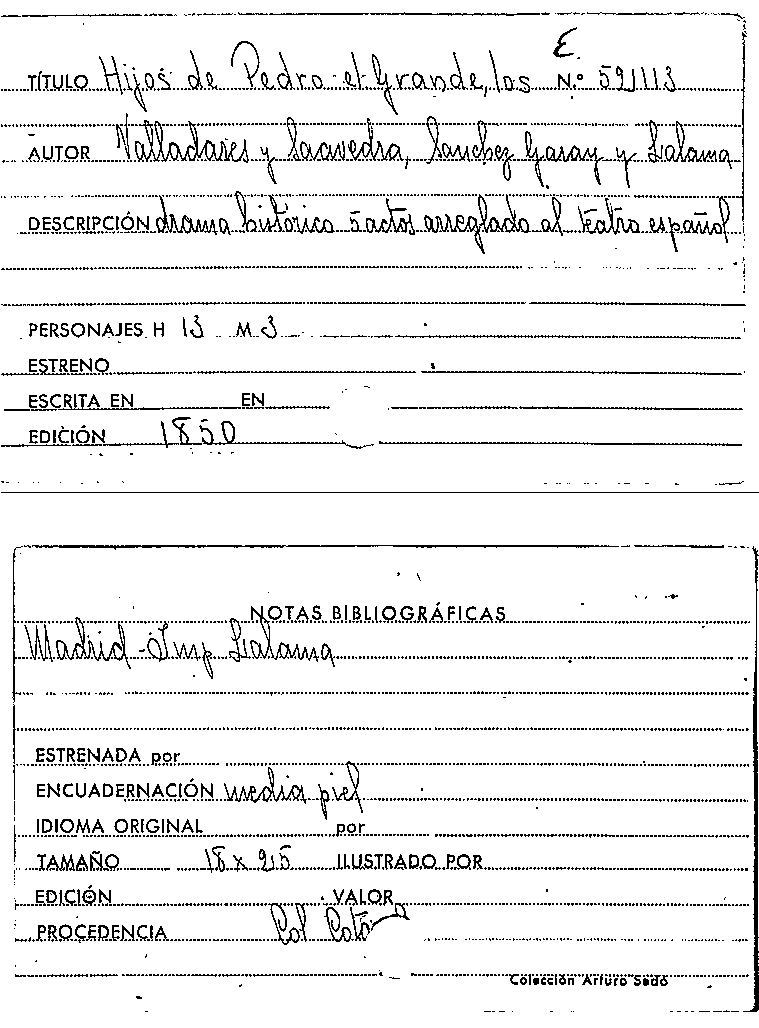 E.
TÍTULO Hijos de Pedro el Grande, los N.º 591113
AUTOR Valladares y Saavedra, Sanchez Garay y Lalama
DESCRIPCIÓN drama histórico 5 actos arreglado al teatro español
PERSONAJES H 13 M 3
ESTRENO
ESCRITA EN EN
EDICIÓN 1850
NOTAS BIBLIOGRÁFICAS
Madrid - Imp Lalama
ESTRENADA por
ENCUADERNACIÓN media piel
IDIOMA ORIGINAL por
TAMAÑO 18 x ILUSTRADO POR
EDICIÓN VALOR
PROCEDENCIA Col
Colección Arturo Sedó